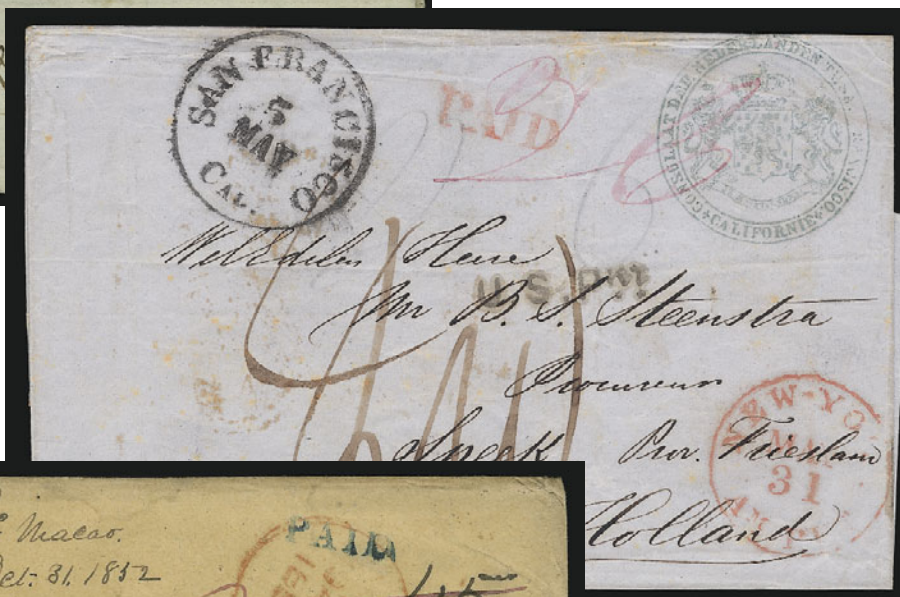 SAN FRANCISCO
5
MAY
CAL.
PAID
26
CONSULAAT DER NEDERLANDEN TE SAN FRANCISCO
CALIFORNIE
WelEdelen Heere
U.S. Pkt
Mr B. S. Steenstra
Procureur
Sneek Prov. Friesland
Holland
NEW-YO
31
Macao.
Oct. 31. 1852
PAID
45